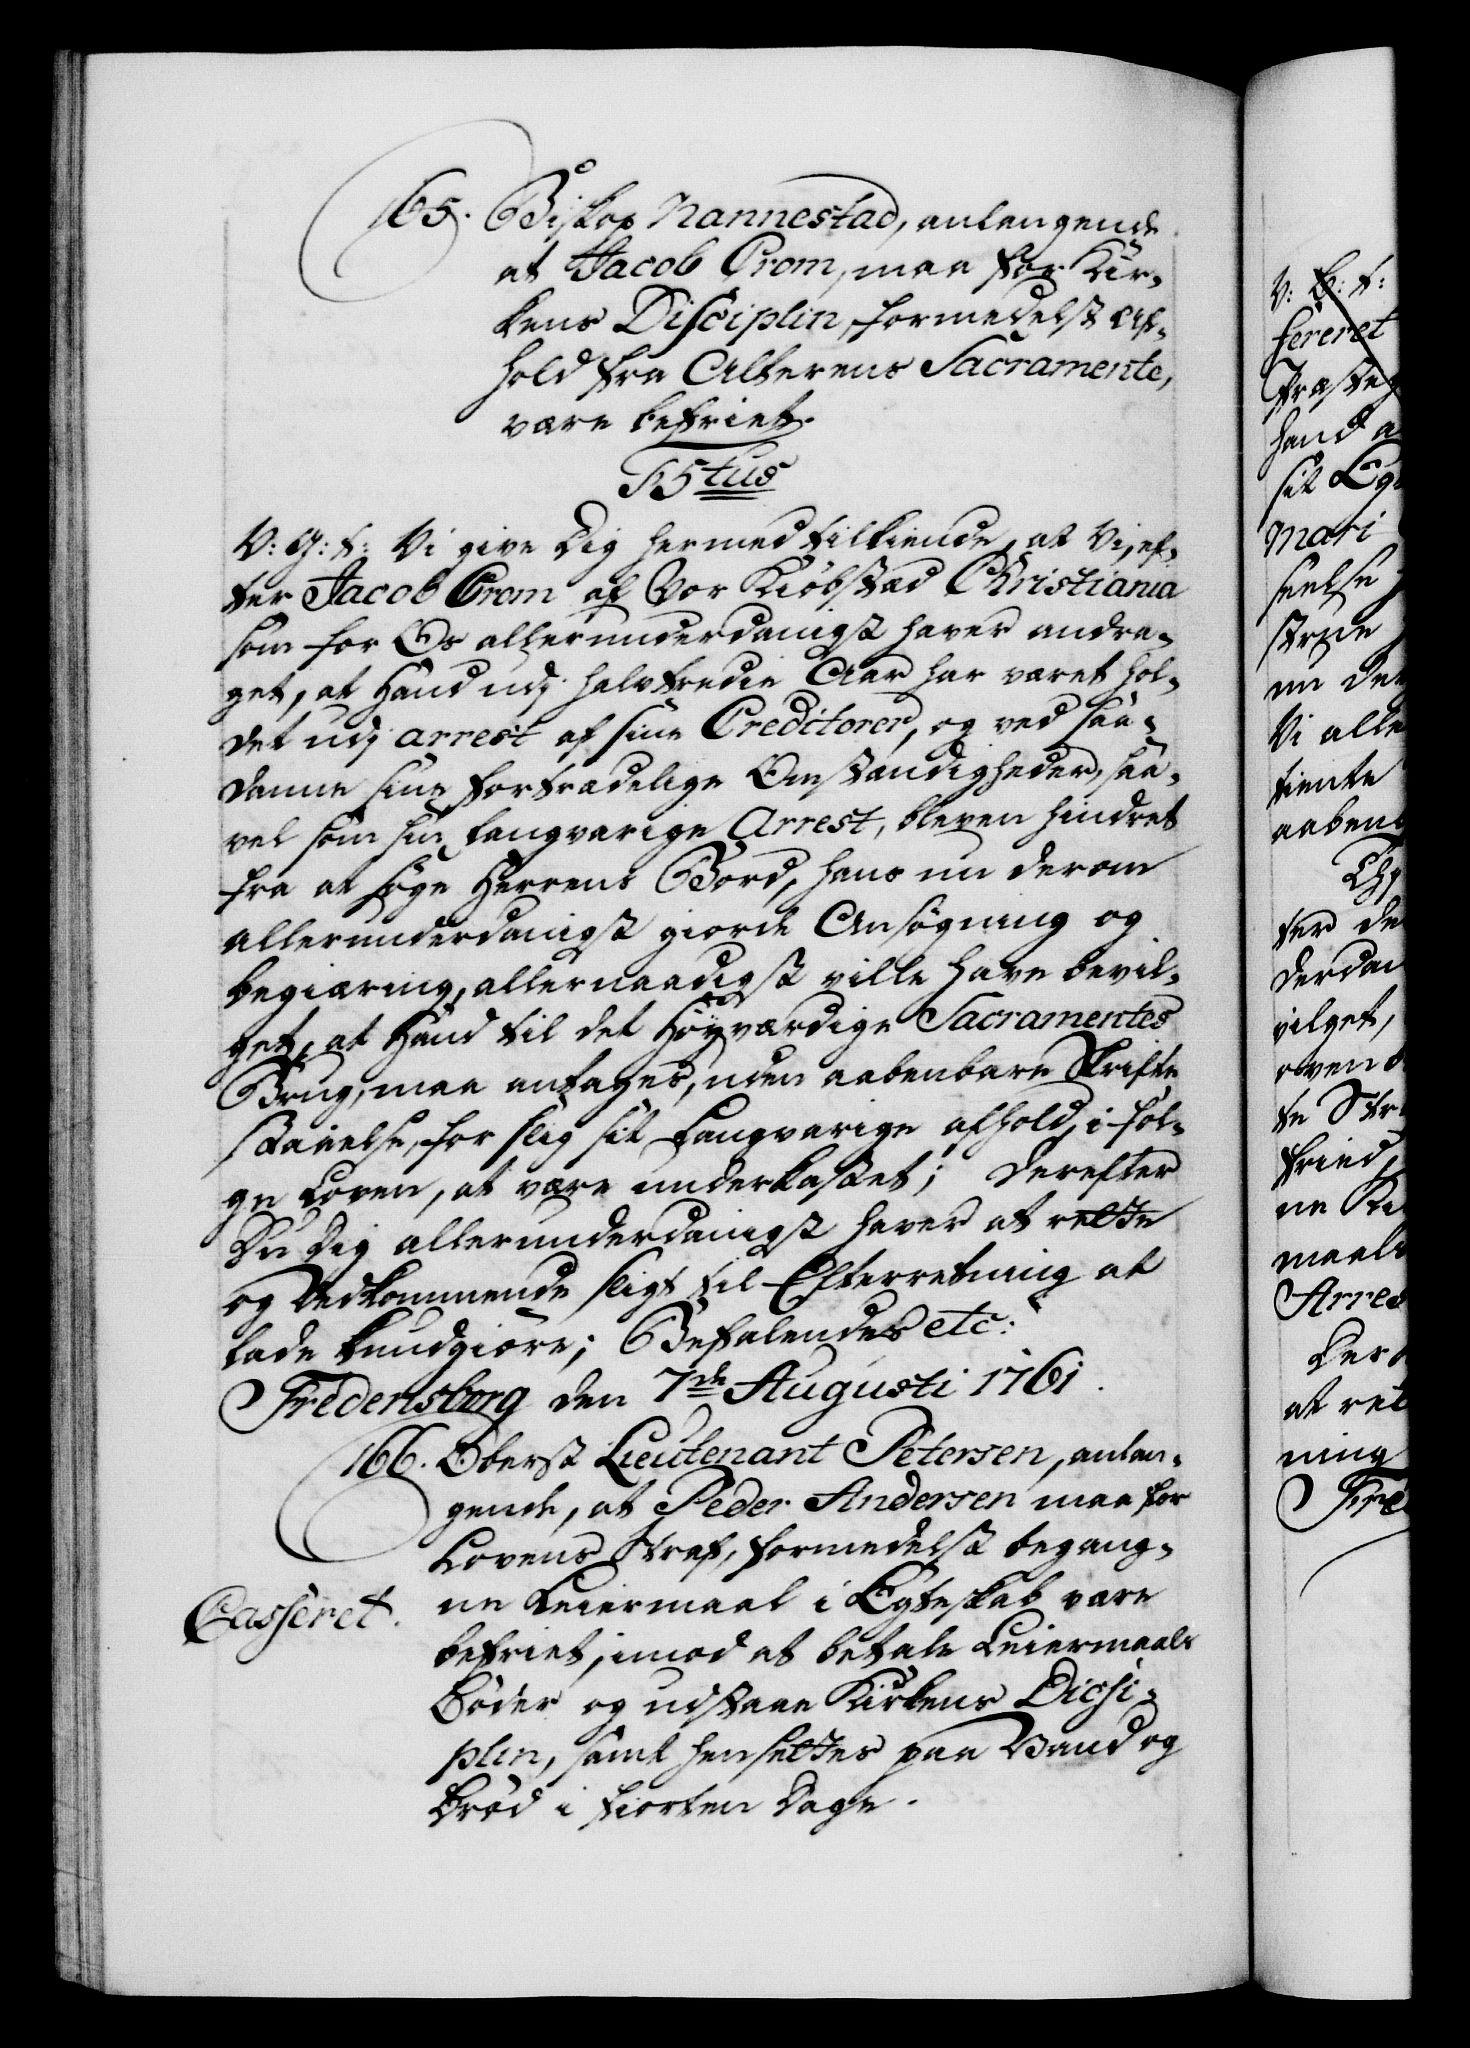 165. Biskop Nannestad, anlangende
at Jacob Crom, maa for Kir-
kens Disciplin, formedelst Af-
hold fra Alterens Sacramente,
være befriet.
F5tus
V: G: T: Vi give Dig hermed tilkiende, at Vi, ef-
ter Jacob Crom af Vor Kiöbstad Christiania
som for Os allerunderdanigst haver andra-
get, at Hand udj halvtredie Aar har været hol-
det udj arrest af sine Creditorer, og ved saa-
danne sine fortrædelige Omstændigheder, saa-
vel som sin langvarige Arrest, bleven hindret
fra at søge Herrens Bord, hans nu derom
allerunderdanigst giorde Ansøgning og
begiæring, allernaadigst ville have bevil-
get, at Hand til det Høyværdige Sacramentes
Brug, maa antages, uden aabenbare Skrifte
staaelse, for slig sit langvarige afhold, i föl-
ge Loven, at være underkastet; Derefter
Du Dig allerunderdanigst haver at rette
og Vedkommende sligt til Efterretning at
lade kundgiöre; Befalendes etc:
Fredensborg den 7de Augusti 1761.
166. Oberst Lieutenant Petersen, anlan-
gende, at Peder Andersen maa for
Lovens Straf, formedelst begang-
Casseret.
ne Leiermaal i Egteskab være
befriet, imod at betale Leiermaals
Böder og udstaae Kirkens Dicsi-
plin, samt hensættes paa Vand og
Bröd i fiorten Dage.
V: G: T:
fereret
hand a
sit Eg
Mari
seelse
nu der
Vi alle
tiente
aaben
ter de
derdan
vilget,
oven b
te Str
fried,
ne Ki
maals
Arres
Der
at ret
ning
Fre